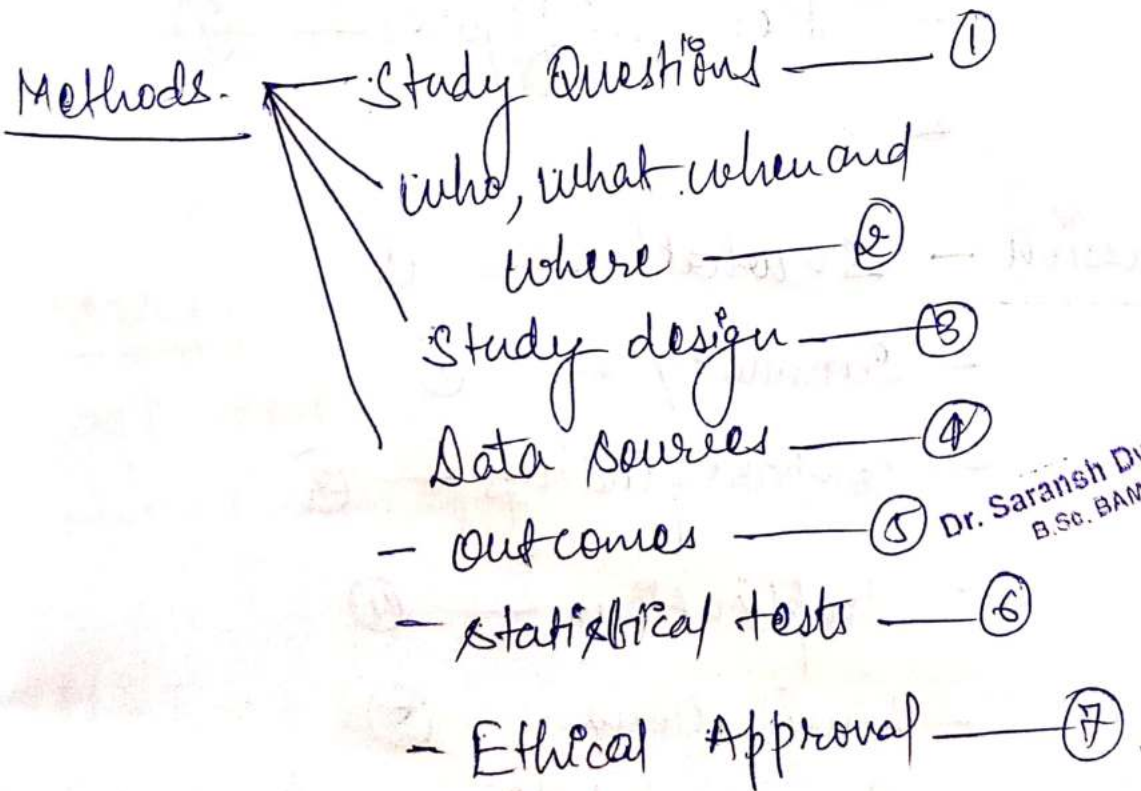 Methods. Study Questions — ①
who, what when and
where — ②
Study design — ③
Data sources — ④
- Outcomes — ⑤
Dr. Saransh
B.Sc.
- statistical tests — ⑥
- Ethical Approval — ⑦